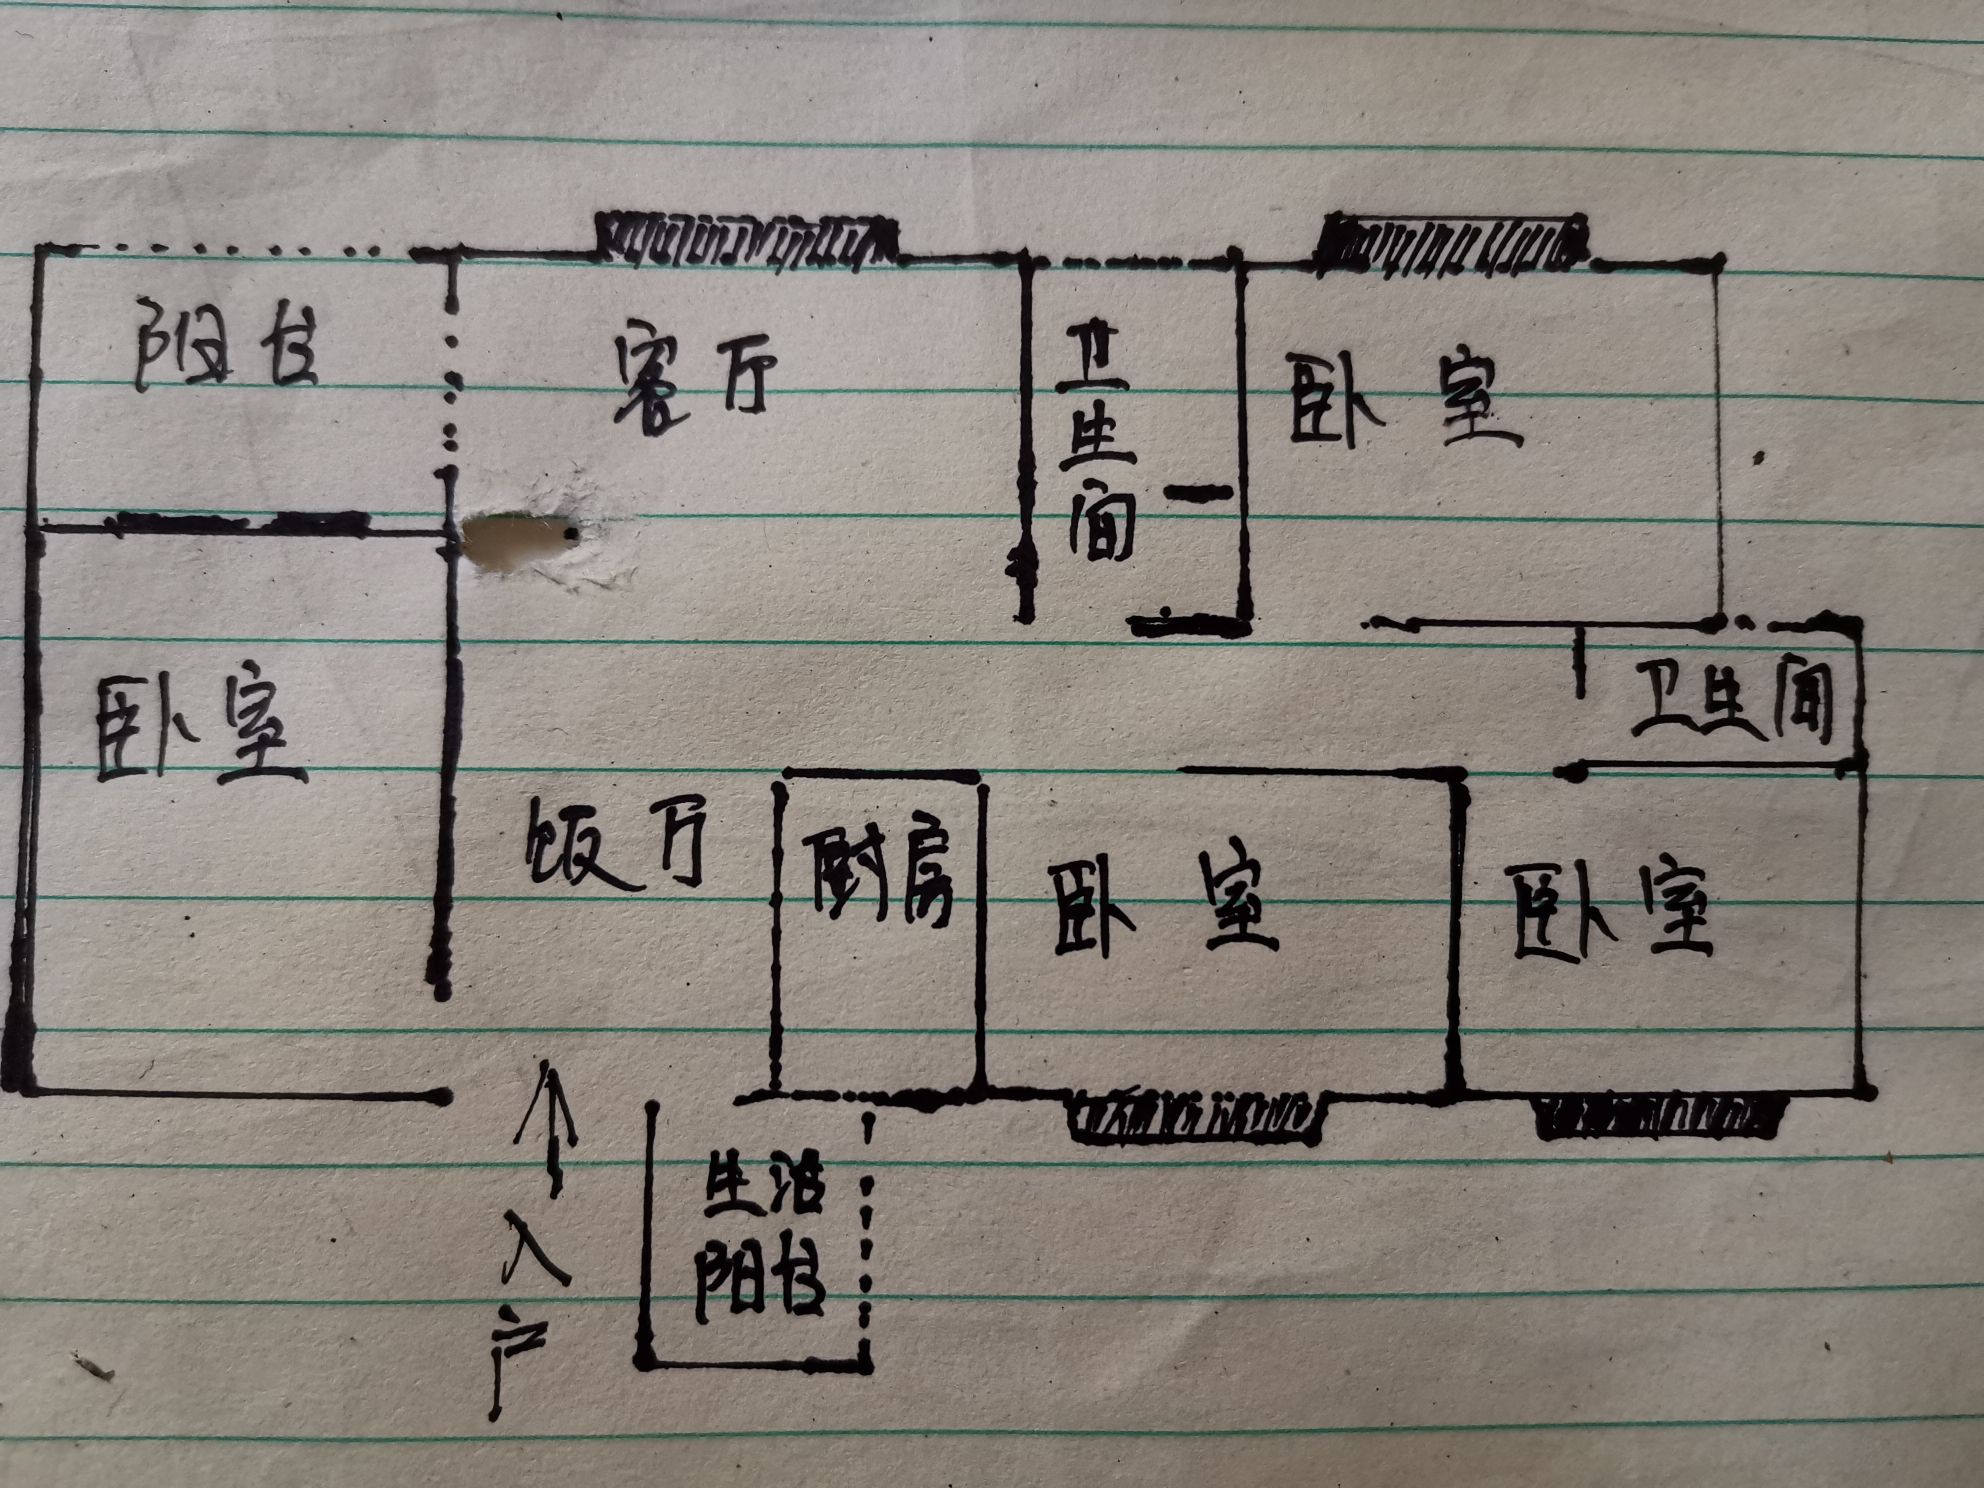 阳台
客厅
卫生间
卧室
卧室
卫生间
饭厅
厨房
卧室
卧室
生活
阳台
入户